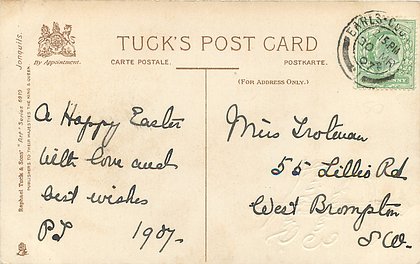 TUCK'S POST CARD
By Appointment.
CARTE POSTALE.
POSTKARTE.
(FOR ADDRESS ONLY.)
Jonquils.
Raphael Tuck & Sons' "Art" Series
PUBLISHERS TO THEIR MAJESTIES THE KING & QUEEN.
EARLS-COURT
A Happy Easter
with love and
best wishes
1907.
Miss Trotman
55 Lillie Rd
West Brompton
S.W.